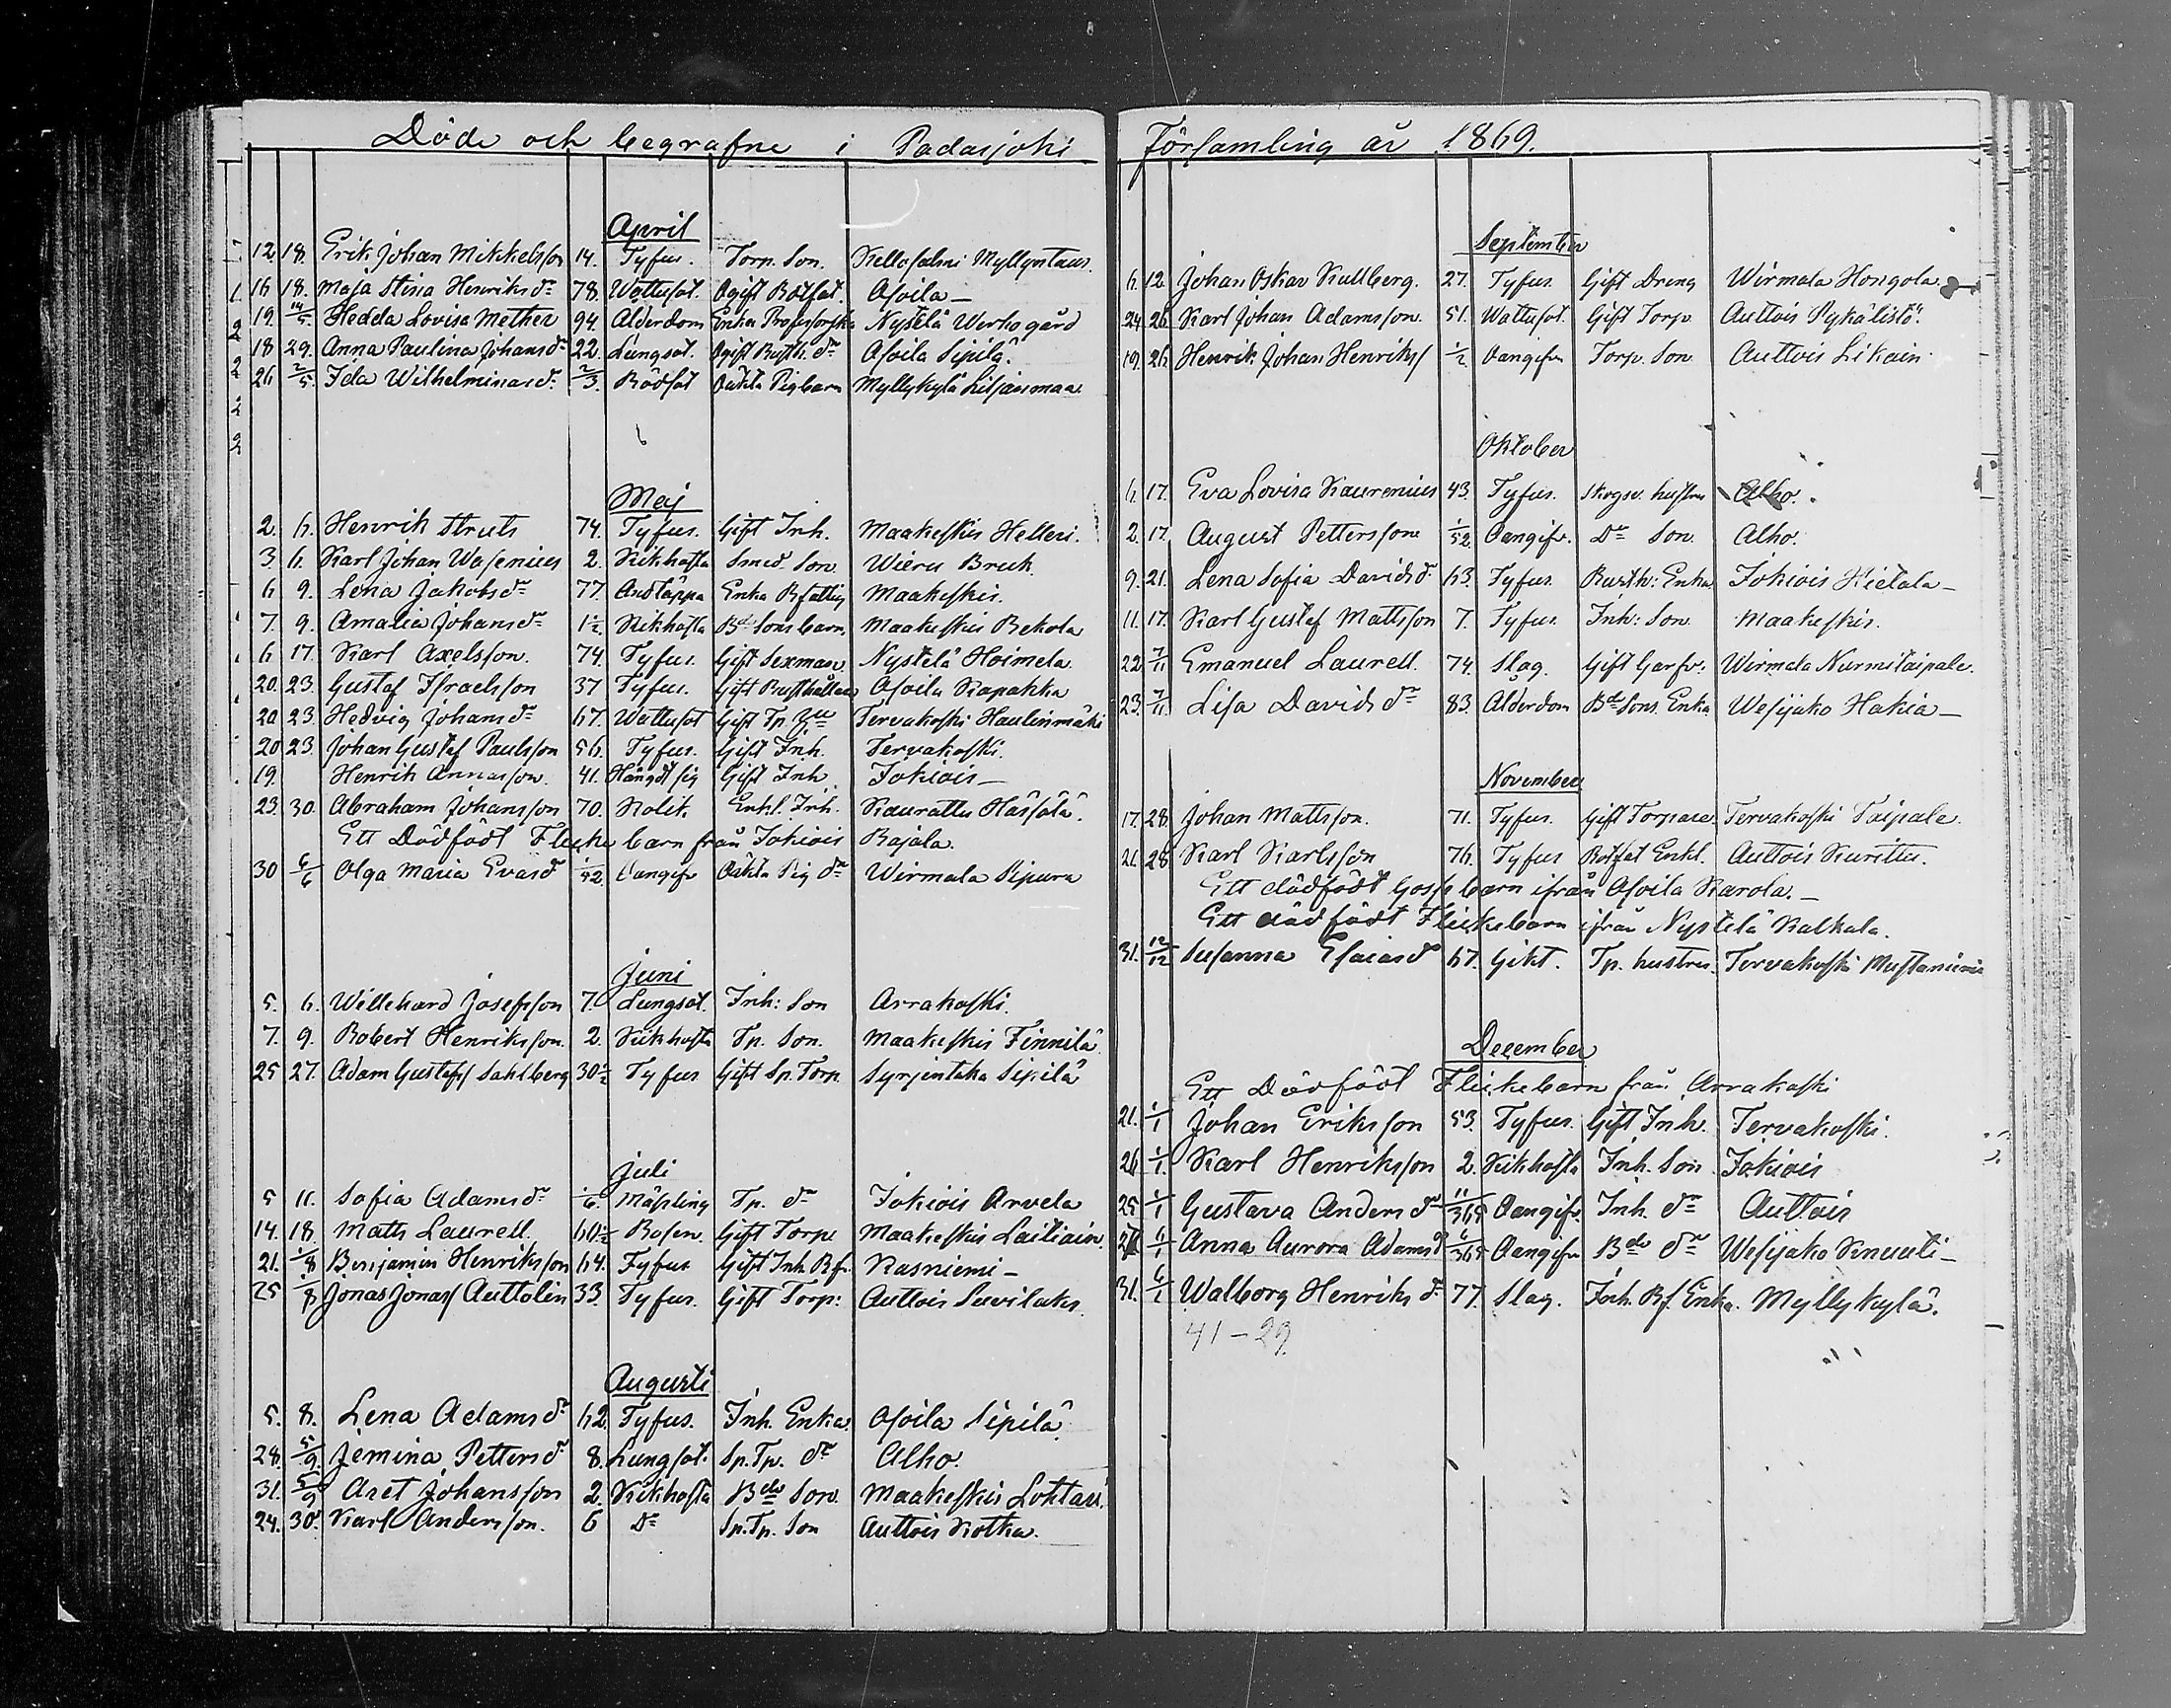 Döde och begrafne i Padasjoki
April
12. 18. Erik Johan Mikkelsson 14. Tyfus. Torp. Son. Kellosalmi Myllyntaus.
16 18. Maja Stina Henriksdr 78. Wattusot. Ogift Rotfat. Asoila —
19. 14/5. Hedda Lovisa Mether 94. Alderdom Enka Professorska Nystelä Werho gård
18 29. Anna Paulina Johansdr 22. Lungsot. Ogift Rusth. dr Asoila Sipilä.
26 2/5. Ida Wilhelminasdr 2/3. Rödsot Oäkta Pigbarn Myllykylä
Maj
2. 6. Henrik Struts 74. Tyfus. Gift Inh. Maakeskis Helleri.
3. 6. Karl Johan Wasenius 2. Kikhosta Smed. Son. Wieru Bruk.
6 9. Lena Jakobsdr 77. Andtäppa Enka Rfattig Maakeskis.
7. 9. Amalia Johansdr 1½. Kikhosta Bde Sons barn. Maakeskis Rekola
6 17. Karl Axelsson. 74. Tyfus. Gift Sexman. Nystelä Hoimela
20. 23. Gustaf Israelsson 37 Tyfus. Gift Rusthållare Asoila Kapakka
20 23. Hedvig Johansdr 67. Wattusot Gift Tp. Tervakoski Haulinmäki
20 23. Johan Gustaf Paulsson 56. Tyfus. Gift Inh. Tervakoski.
19. Henrik Annasson. 41. Hängdt sig Gift Inh Jokiois —
23. 30. Abraham Johansson 70. Kolik. Enkl. Inh. Kaurattu Hassala.
Ett Dödfödt Flicke barn från Jokiois Rajala.
30 6/6 Olga Maria Evasdr 1/52 Oangifv Oäkta Pig dr Wirmala Sipura
Juni
5. 6. Willehard Josefsson 7. Lungsot. Inh: Son Arrakoski.
7. 9. Robert Henriksson. 2. Kikhosta Tp. Son. Maakeskis Finnilä
25 27. Adam Gustafs/ Sahlberg 30½ Tyfus Gift Sp. Torp Syrjentaka Sipilä
Juli
5 11. Sofia Adamsdr 1/6. Mässling Tp. dr Jokiois Arvela
14. 18. Matts Laurell. 60½ Rosen. Gift Torp Maakeskis Lailiain.
21. 1/8 Benjamin Henriksson 64. Tyfus Gift Inh Rf. Kasniemi —
25 1/8 Jonas Jonas/ Auttolin 33. Tyfus. Gift Torp: Auttois
Augusti
5. 8. Lena Adamsdr 62. Tyfus. Inh. Enka. Asoila Sipilä
28. 5/9. Jemina Pettersdr 8. Lungsot. Sp. Tp. dr Alho.
31. 5/9 Aret Johansson 2. Kikhosta Bde Son. Maakeskis Lohtari.
24. 30. Karl Andersson. 6 Dr Sp. Tp. Son Auttois Kotka.
Församling år 1869.
September
6. 12. Johan Oskar Kullberg. 27. Tyfus. Gift Dreng Wirmala Hongola.
24 26 Karl Johan Adamsson. 51. Wattusot. Gift Torp Auttois Pykälistö.
19. 26. Henrik Johan Henriks/ 1/2 Oangifv Torp. Son Auttois
Oktober
6. 17. Eva Lovisa Laurenius 43. Tyfus. Skogsv. hustru Alho.
2. 17. August Pettersson 1/52. Oangifv. Dr Son. Alho.
9. 21. Lena Sofia Davidsdr 63. Tyfus. Rusth: Enka. Jokiois Hietala —
11. 17. Karl Gustaf Mattsson 7. Tyfus. Inh: Son. Maakeskis.
22 7/11 Emanuel Laurell. 74. Slag. Gift Garfv. Wirmala Nurmitaipale.
23. 7/11. Lisa Davidsdr 83. Alderdom Bde Sons. Enka Wesijako Hakia —
November
17. 28. Johan Mattsson. 71. Tyfus. Gift Torpare. Tervakoski Taipale.
21. 28 Karl Karlsson 76. Tyfus Rotfat Enkl. Auttois Kurittu.
Ett dödfödt Gosse barn ifrån Asoila Karola. —
Ett dödfödt Flickebarn ifrån Nystelä Kalkala.
31. 12/12 Susanna Esaiasdr 67. Gikt. Tp. hustru. Tervakoski Mustaniemi
December
Ett Dödfödt Flickebarn från Arrakoski
21. 1/1 Johan Eriksson 53. Tyfus. Gift Inh. Tervakoski.
26 1/1. Karl Henriksson 2. Kikhosta Inh. Son Jokiois
25 1/1 Gustava Andersdr 11/365 Oangifv. Inh. dr Auttois
6/1 Anna Aurora Adamsdr 6/365 Oangifv Bde dr Wesijako Knuuti —
31. 6/1 Walborg Henriksdr 77. Slag. Inh. Rf. Enka. Myllykylä.
41 – 29